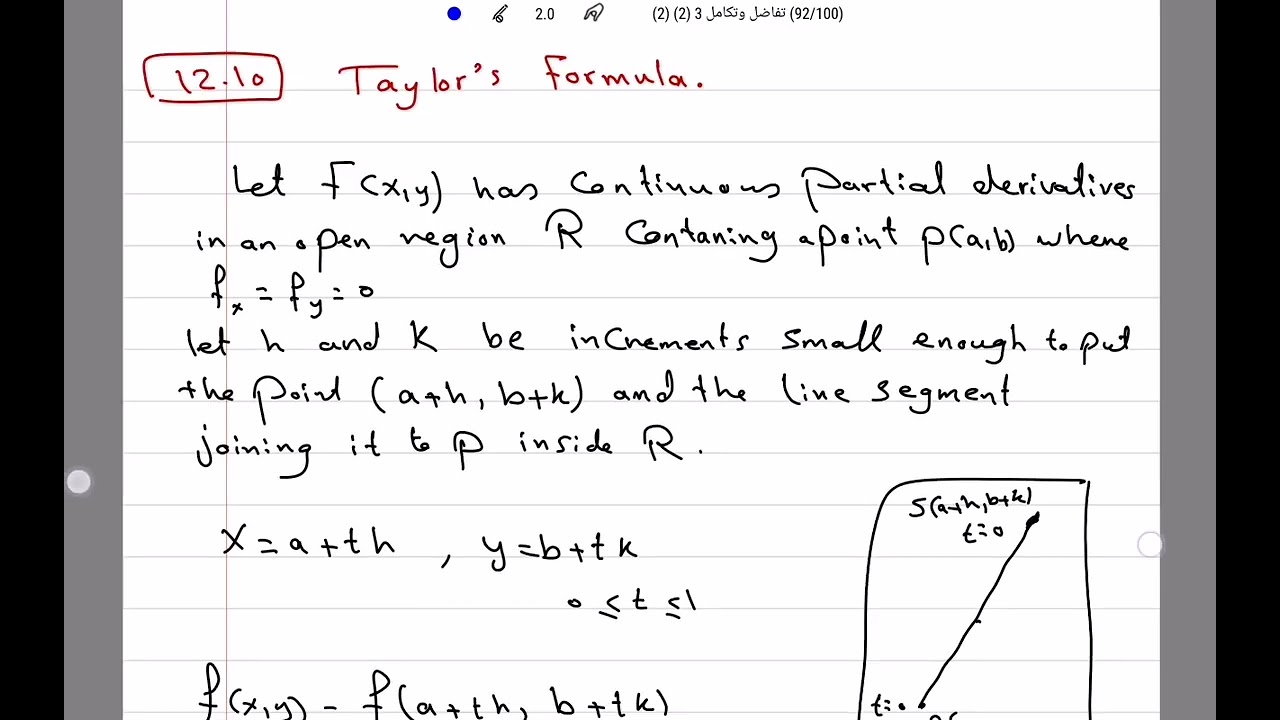 2.0 تفاضل وتكامل 3 (2) (2) (92/100)
12.10 Taylor's Formula.
Let F(x,y) has continuous partial derivatives
in an open region R Contaning a point P(a,b) where
fx = fy = 0
let h and K be increments small enough to put
the point (a+h, b+k) and the line segment
joining it to P inside R.
S(a+h,b+k)
t=0
X = a + th , y = b + tk
0 ≤ t ≤ 1
f(x,y) = f(a+th, b+tk)
t=0